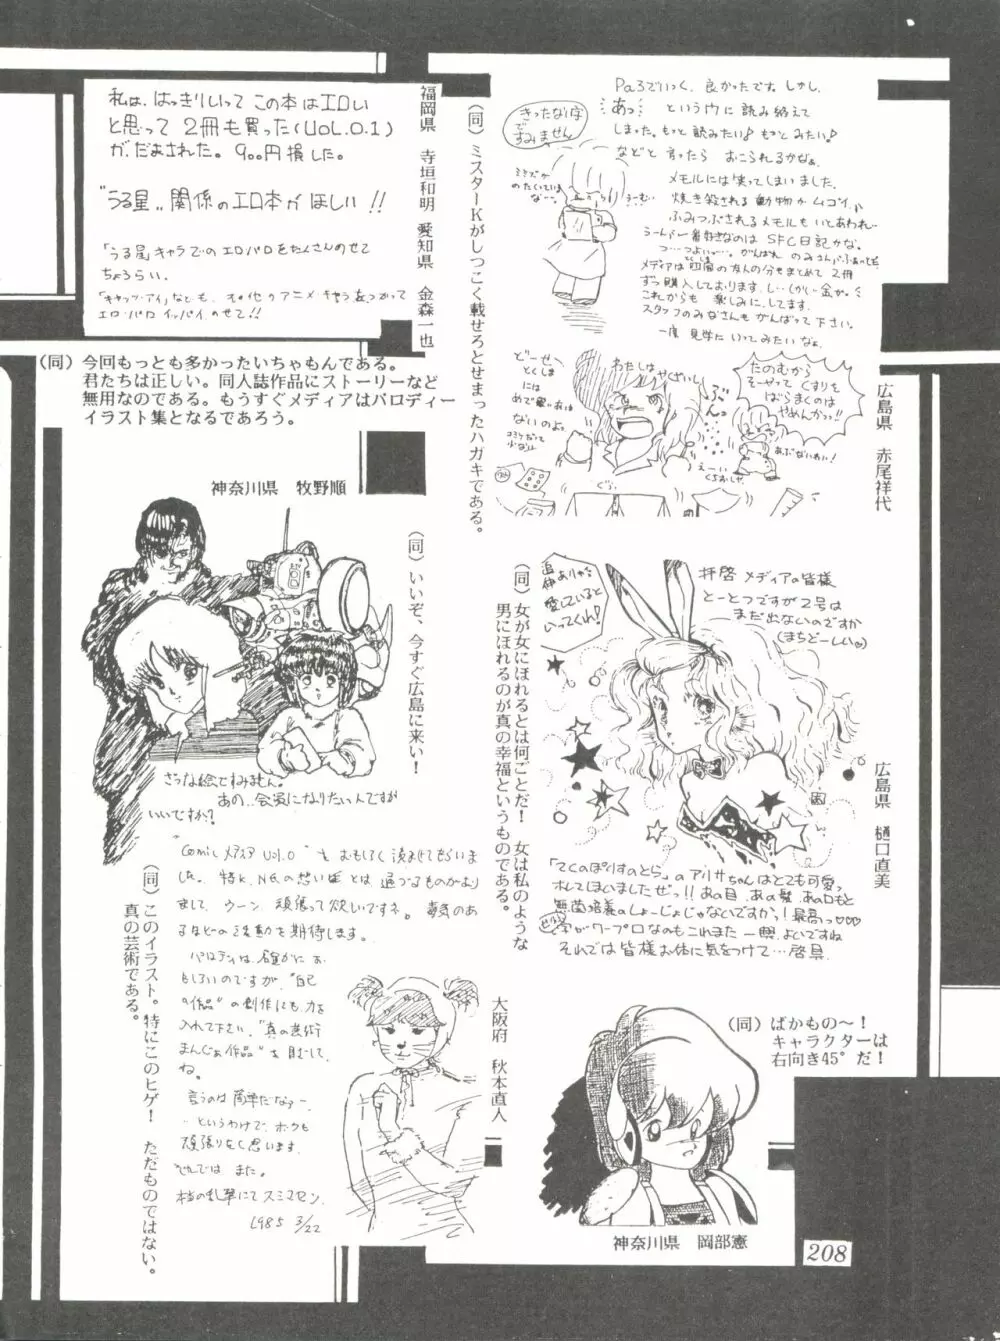 私は、はっきりいって この本はエロい
と思って 2冊も買った(VOL.0.1)
が、だまされた。900円損した。
"うる星" 関係のエロ本がほしい!!
「うる星」キャラでのエロパロをたくさんのせて
ちょうらい。
「キャッツ・アイ」なども、その他のアニメ・キャラをつかって
エロ・パロ イッパイ のせて!!
福岡県 寺垣和明 愛知県 金森一也
(同)今回もっとも多かったいちゃもんである。
君たちは正しい。同人誌作品にストーリーなど
無用なのである。もうすぐメディアはパロディー
イラスト集となるであろう。
(同)ミスターKがしつこく載せろとせまったハガキである。
きったな字
ですみません
Pa3でいっく、良かったです。しかし、
あっ… というウに 読み終えて
しまった。もっと読みたい♪もっとみたい♪
などと 言ったら おこられるかなぁ。
メモルには笑ってしまいました。
焼き殺される動物か ムゴイ
ふみつぶされるメモルもいとあわれ…
うーん 一番好きなのは SFC日記かな。
メディアは 友人の分もまとめて 2冊
ずつ購入しております。し…しかし金が…
これからも 楽しみに…してます。
スタッフのみなさんもがんばって下さい。
一度 見学に いってみたいなぁ。
どーせ
わたしは
やさいし
ぶん
たのむから
そーやって くすりを
ばらまくのは
やめんかっ!!
あぶないわい!
えーい
ぐぅ
広島県 赤尾祥代
神奈川県 牧野順
(同)いいぞ、今すぐ広島に来い!
きたな絵ですみません。
あの…会員になりたいんですが
いいですか?
(同)女が女にほれるとは何ごとだ! 女は私のような
男にほれるのが真の幸福というものである。
愛していると
いってくれ!
拝啓 メディアの皆様
とーとつですが2号は
まだ出ないのですか
(まちどーしいっ)
広島県 樋口直美
「てくのぽりすのとら」のアリサちゃんはとても可愛っ
ホレてしまいましたぜっ!!あの目、あの髪、あの口もと
無菌培養のしょーじょじゃないですかっ!最高っ♡♡♡
字がワープロなのもこれまた一興、よいですね
それでは皆様お体に気をつけて…啓具
"Comic メディア Vol.0" をおもしろく読ませてもらいま
した。特にK.N氏の想いには通づるものがあり
まして、ウーン、頑張って欲しいですネ。毒気のあ
るほどの活動を期待します。
パロディは、確かにお
もしろいのですが、"自己
の作品"の創作にも力を
入れて下さい。"真の芸術
まんがぁ作品"を目ざして
ね。
言うのは簡単だなァー。
…というわけで、ボクも
頑張りなく思います。
それでは また。
本当の乱筆にて スミマセン。
1985 3/22
(同)このイラスト。特にこのヒゲ! ただものではない。
真の芸術である。
大阪府 秋本直人
(同)ばかもの〜!
キャラクターは
右向き45°だ!
神奈川県 岡部憲
208